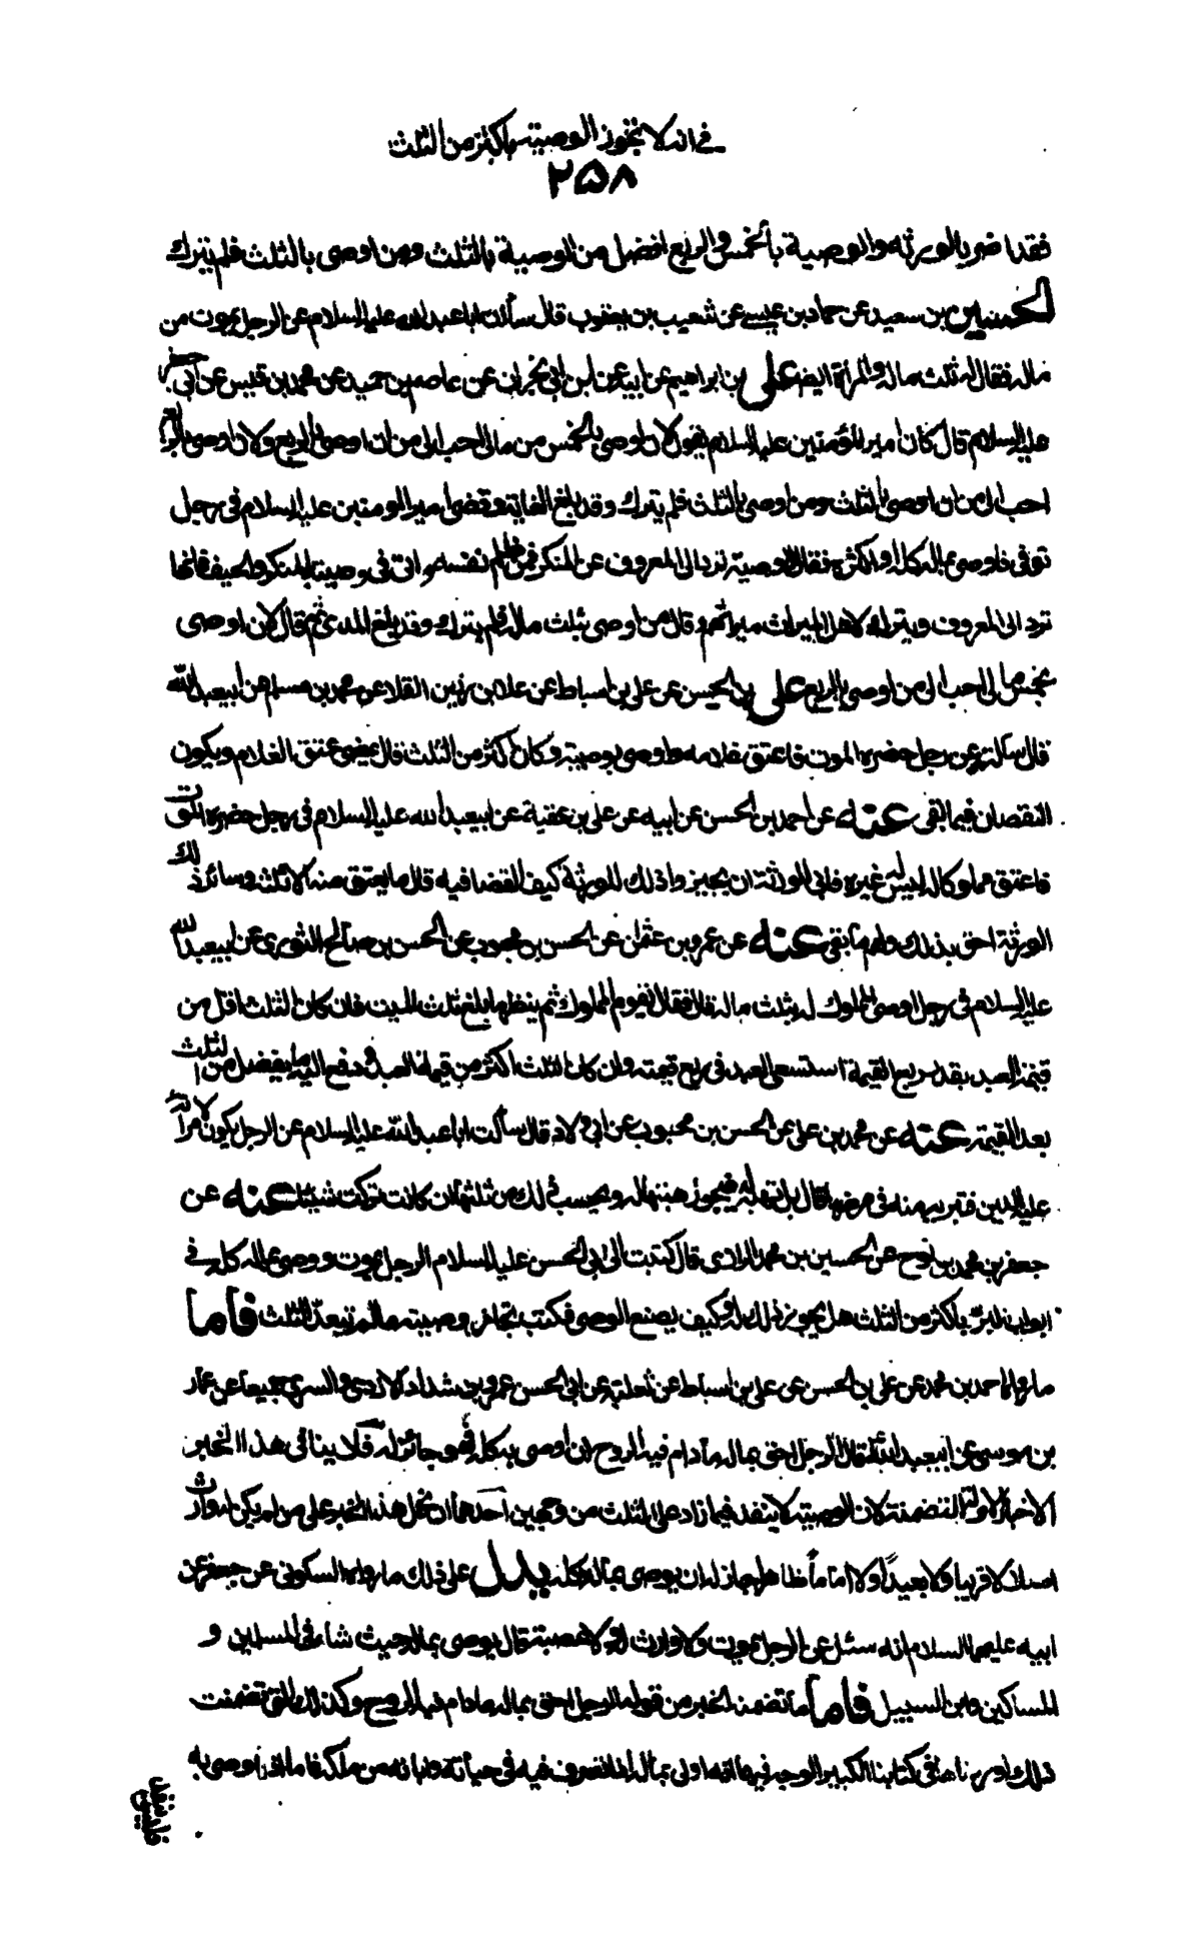 في انه لا تجوز الوصية باكثر من الثلث
٢٥٨
فقد اضر بالورثة والوصية بالخمس والربع افضل من الوصية بالثلث ومن اوصى بالثلث فلم يترك
الحسين بن سعيد عن حماد بن عيسى عن شعيب بن يعقوب قال سألت ابا عبدالله عليه السلام عن الرجل يموت من
ماله فقال له ثلث ماله وللمرأة ايضا على بن ابراهيم عن ابيه عن ابن ابي نجران عن عاصم بن حميد عن محمد بن قيس عن ابي جعفر
عليه السلام قال كان امير المؤمنين عليه السلام يقول لان اوصى بالخمس من مالى احب الى من ان اوصى بالربع ولان اوصى بالربع
احب الى من ان اوصى بالثلث ومن اوصى بالثلث فلم يترك وقد بلغ الغاية وقضى امير المومنين عليه السلام في رجل
توفى فاوصى بماله كله او اكثره فقال الوصية ترد الى المعروف عن المنكر فمن ظلم نفسه واتى في وصيته المنكر والحيف فانها
ترد الى المعروف ويترك لاهل الميراث ميراثهم وقال من اوصى بثلث ماله فلم يترك وقد بلغ المدى ثم قال لان اوصى
بخمس مالى احب الى من اوصى بالربع على بن الحسن عن على بن اسباط عن علا بن رزين القلا عن محمد بن مسلم عن ابيعبدالله
قال سألته عن رجل حضره الموت فاعتق غلامه واوصى بوصيته وكان اكثر من الثلث قال يمضى عتق الغلام ويكون
النقصان فيما بقى عنه عن احمد بن الحسن عن ابيه عن على بن عقبة عن ابيعبدالله عليه السلام في رجل حضره الموت
فاعتق مملوكا له ليس له غيره فابى الورثة ان يجيزوا ذلك للورثة كيف القضا فيه قال ما يعتق منه الا ثلث وسائر ذلك
الورثة احق بذلك ولهم ما بقى عنه عن عمرو بن عثمان عن الحسن بن محبوب عن الحسن بن صالح الثورى عن ابيعبدالله
عليه السلام في رجل اوصى لمملوك له بثلث ماله قال فقال يقوم المملوك ثم ينظر ما بلغ ثلث الميت فان كان الثلث اقل من
قيمة العبد بقدر ربع القيمة استسعى العبد في ربع قيمته وان كان الثلث اكثر من قيمة العبد دفع اليه ما يفضل من الثلث
بعد القيمة عنه عن محمد بن على عن الحسن بن محبوب عن ابي ولاد قال سألت ابا عبدالله عليه السلام عن الرجل يكون لامرأته
عليه الدين فتبريه منه في مرضها قال بل تهبه له فيجوز هبتها له ويحسب ذلك من ثلثها ان كانت تركت شيئا عنه عن
جعفر بن محمد بن نوح عن الحسين بن محمد الرازى قال كتبت الى ابى الحسن عليه السلام الرجل يموت ويوصى بماله كله في
ابواب البر باكثر من الثلث هل يجوز ذلك له وكيف يصنع الوصى فكتب تجاز وصيته مالم تبعد الثلث فاما
ما رواه احمد بن محمد عن على بن الحسن عن على بن اسباط عن ثعلبة عن ابى الحسن عمرو بن شداد الازدى والسرى جميعا عن عمار
بن موسى عن ابيعبدالله قال الرجل احق بماله مادام فيه الروح ان اوصى به كله فهو جائز له فلا ينافى هذا الخبر
الاخبار الاولة المتضمنة لان الوصية لا ينفذ فيما زاد على الثلث من وجهين احدهما ان نحمل هذا الخبر على من لم يكن له وارث
اصلا لا قريبا ولا بعيدا ولا اماما ظاهرا جاز له ان يوصى بماله كله يدل على ذلك ما رواه السكونى عن جعفر عن
ابيه عليهما السلام انه سئل عن الرجل يموت ولا وارث له ولا عصبة قال يوصى بماله حيث شاء في المسلمين و
المساكين وابن السبيل فاما ما تضمنه الخبر من قوله الرجل احق بماله مادام فيه الروح وكذلك التى تضمنت
ذلك اوردناها في كتابنا الكبير الوجه فيها انه اولى بماله اذا تصرف فيه في حياته وابانه من ملكه فاما اذا وصى به